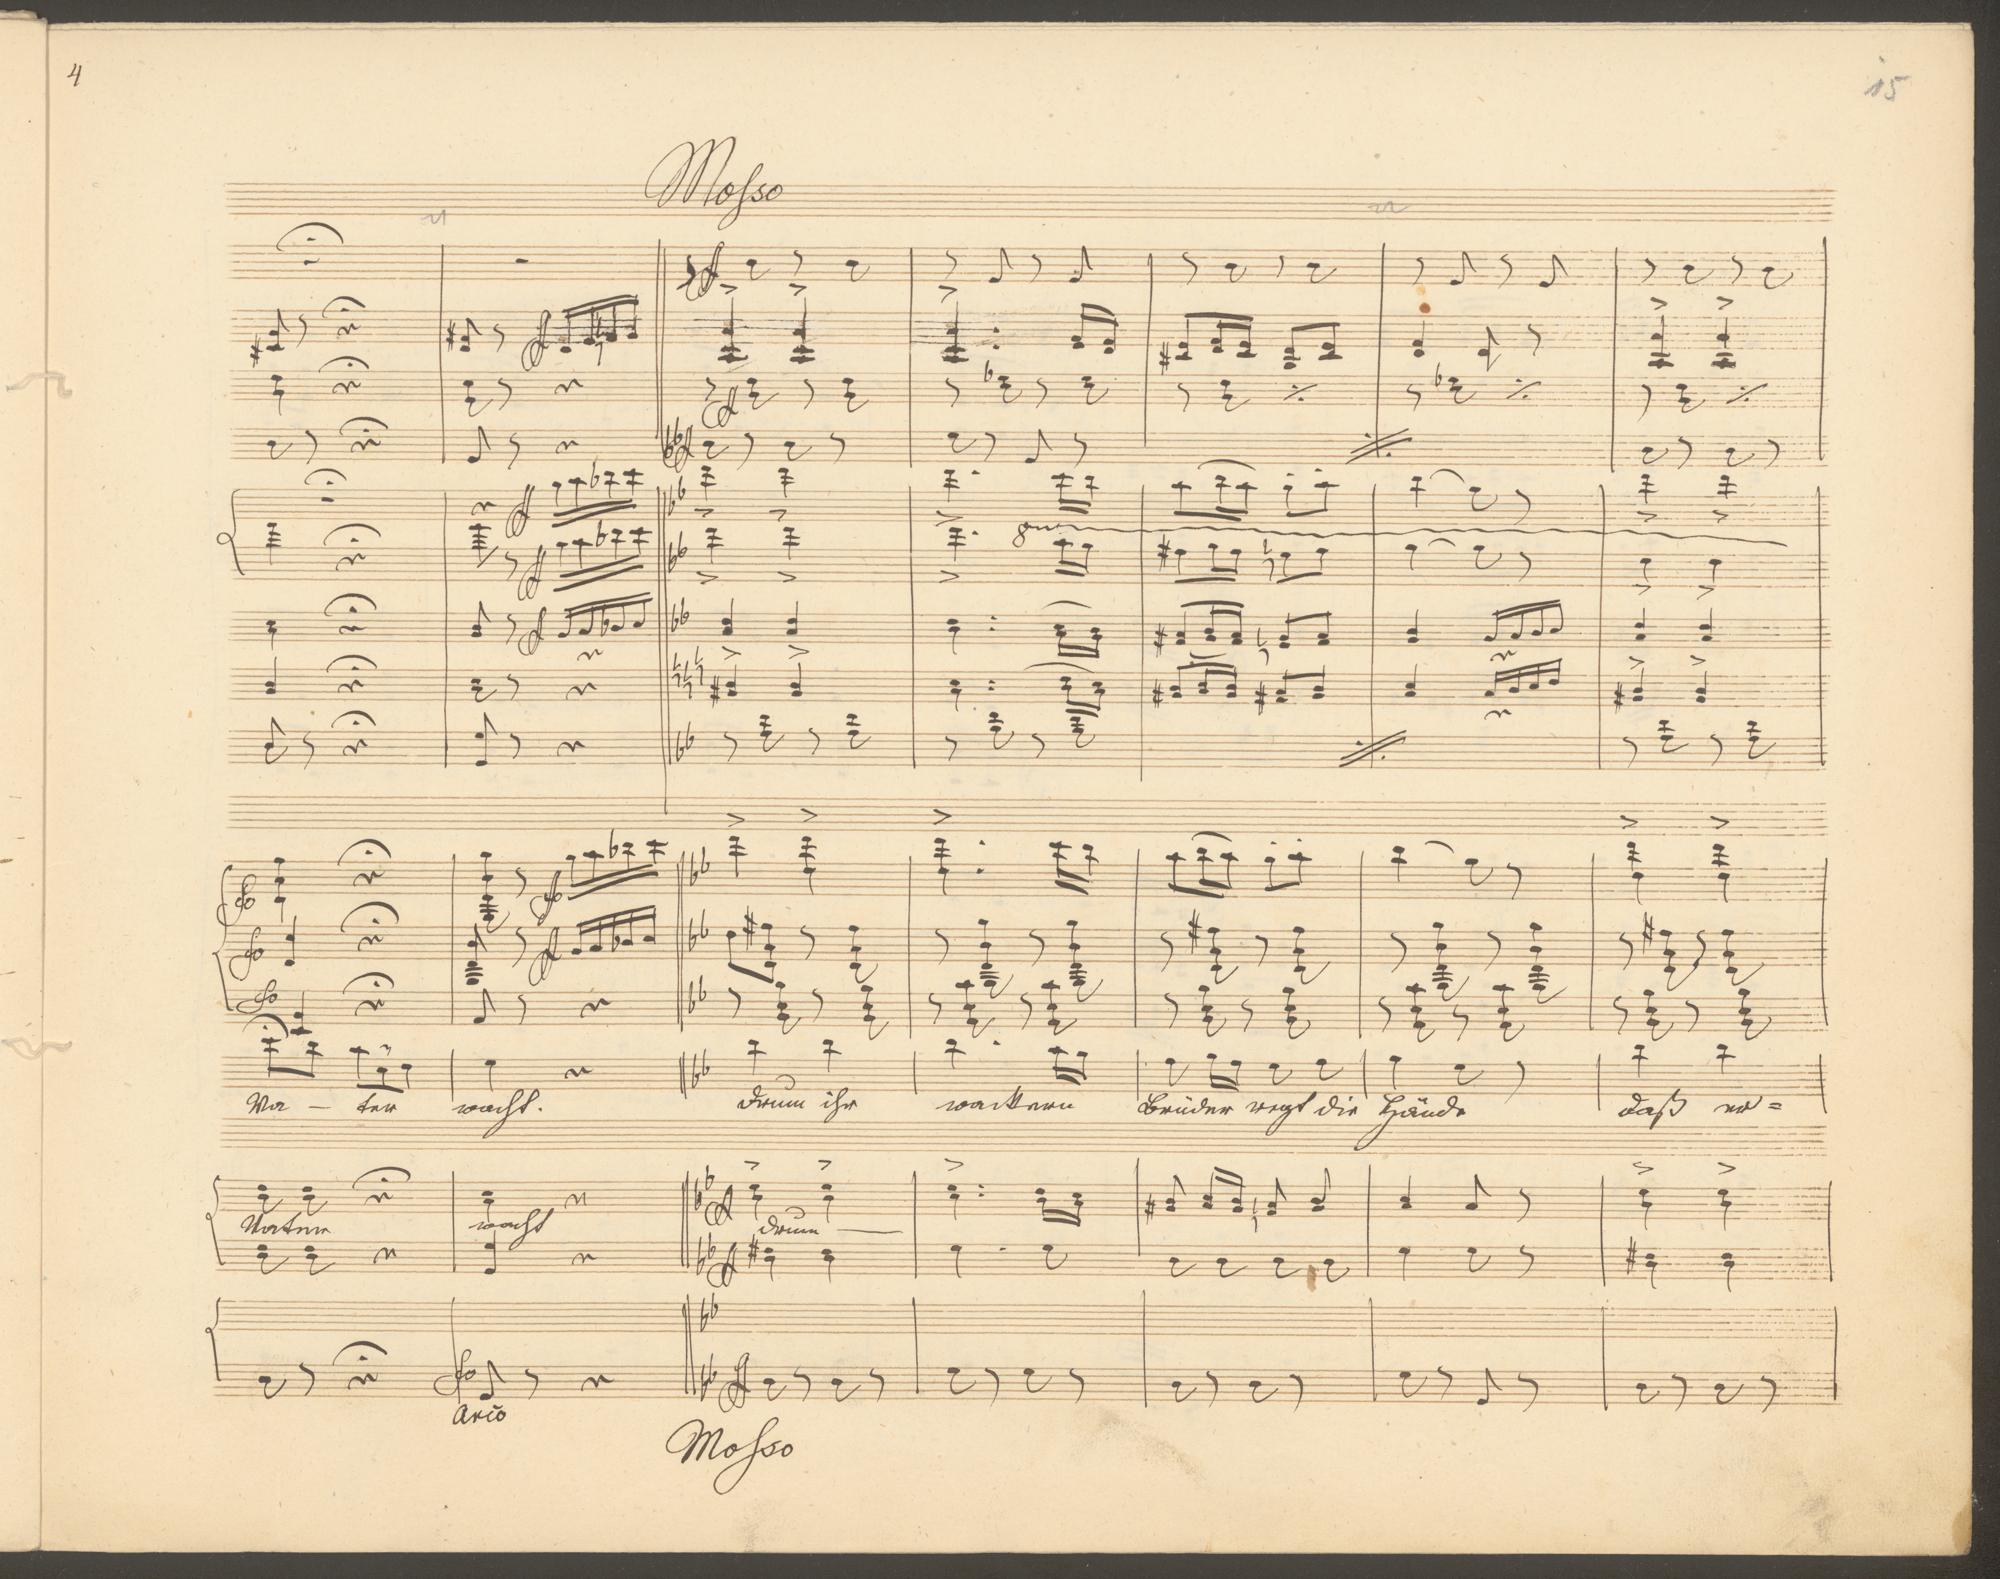 4
15
Mosso
Va - ter wacht. drum ihr wackern Brüder regt die Hände daß er =
Vater wacht drum
Arco
Mosso